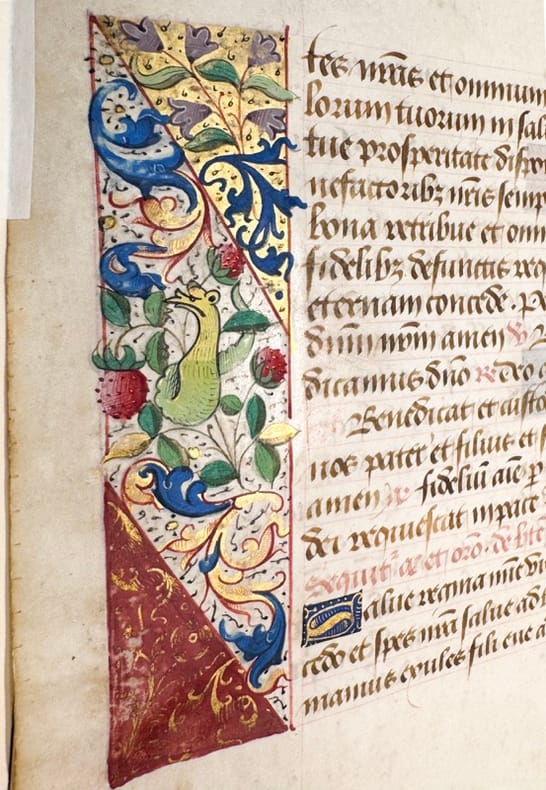 tes nr̄is et omnium
lorum tuorum in sal
tue prosperitate dispon
nefactoribz nr̄is semp
bona retribue et omn
fidelibz defunctis req
eternam concede. pe
dnm̄ nrm̄ amen v
dicamus dn̄o re deo
Benedicat et custo
nos pater et filius et s
amen re fidelium aīe p
dei requiescat in pace
Sequitr̄
Salue regina mīe vi
cedo et spes nrā salue ad t
mamus exules filii eue a